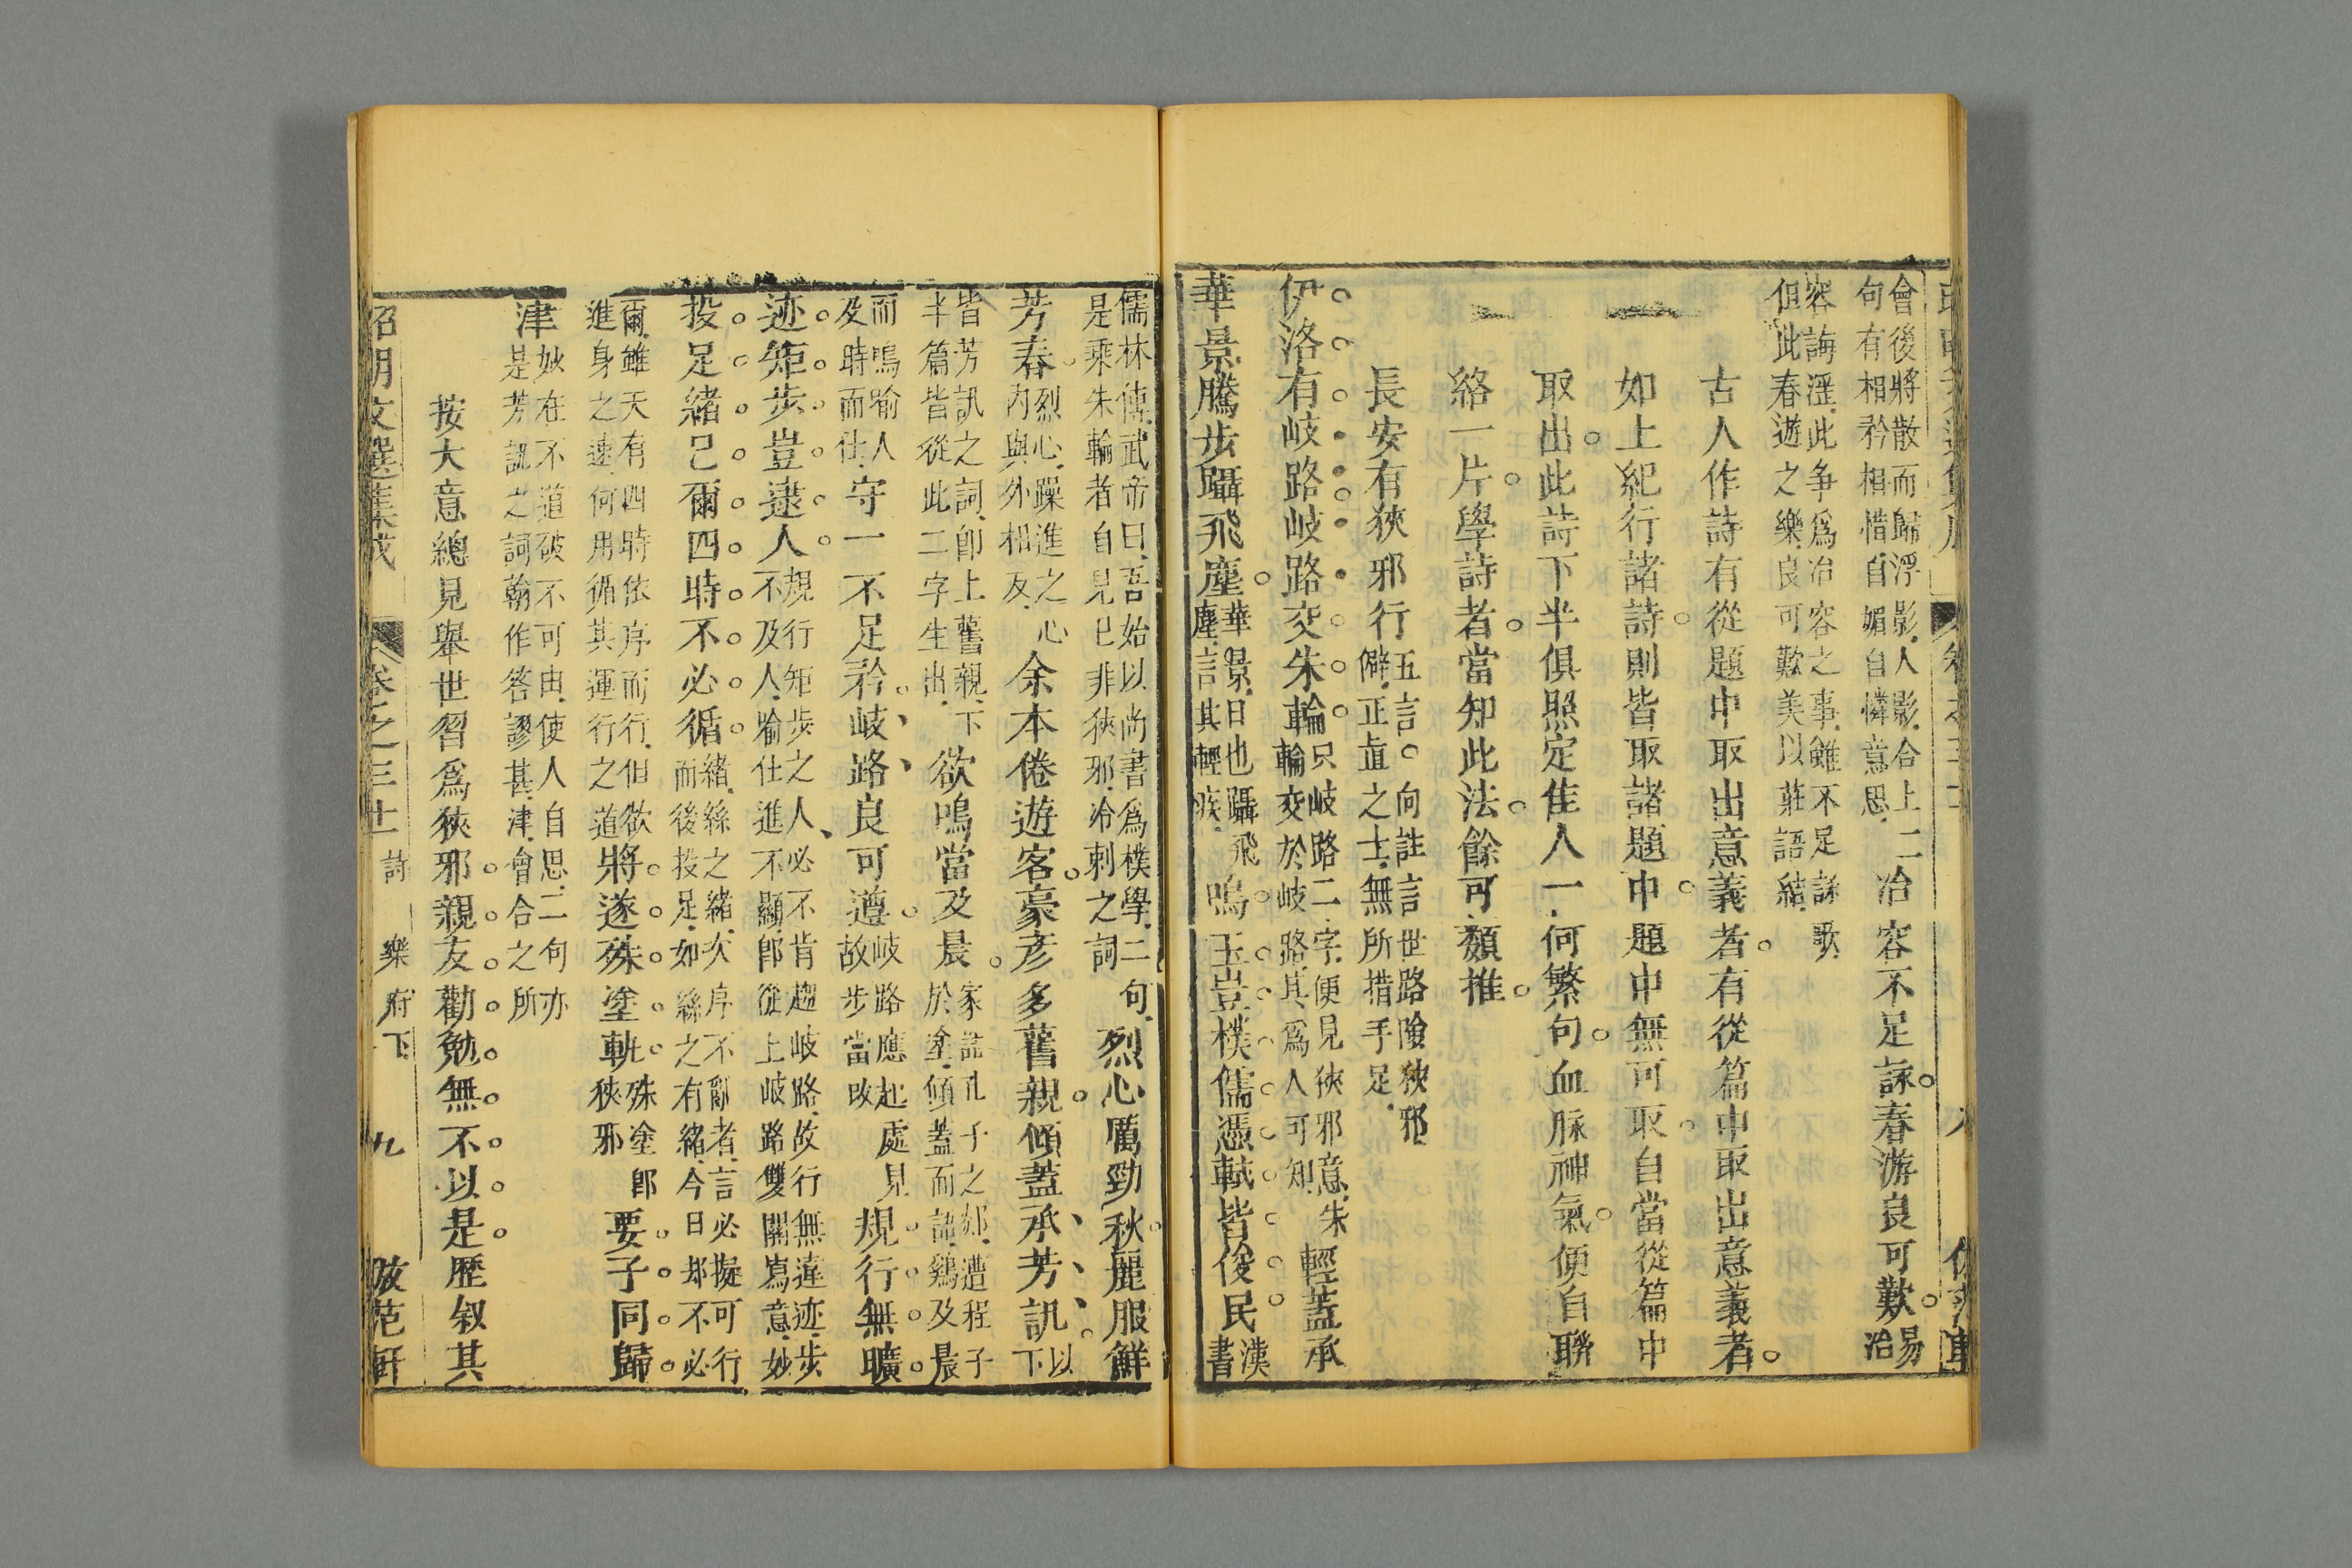 會後將散而歸浮影人影合上二
句有相矜相惜自媚自憐意思
冶容不足詠春游良可歎
易
冶
容誨淫此爭爲冶容之事雖不足詠歌
但此春遊之樂良可歎美以莊語結
古人作詩有從題中取出意義者有從篇中取出意義者
如上紀行諸詩則皆取諸題中題中無可取自當從篇中
取出此詩下半俱照定佳人一何繁句血脉神氣便自聯
絡一片學詩者當知此法餘可類推
長安有狹邪行
五言向註言世路險狹邪
僻正直之士無所措手足
伊洛有岐路岐路交朱輪
只岐路二字便見狹邪意朱
輪交於岐路其爲人可知
輕蓋承
華景騰步躡飛塵
華景日也躡飛
塵言其輕疾
鳴玉豈樸儒憑軾皆俊民
漢
書
儒林傳武帝曰吾始以尚書爲樸學二句
是乘朱輪者自見已非狹邪冷刺之詞
烈心厲勁秋麗服鮮
芳春
烈心躁進之心
內與外相反
余本倦遊客豪彥多舊親傾蓋承芳訊
以
下
皆芳訊之詞卽上舊親下
半篇皆從此二字生出
欲鳴當及晨
家語孔子之郯遭程子
於塗傾蓋而語鷄及晨
而鳴喻人
及時而仕
守一不足矜岐路良可遵
岐路應起處見
故步當改
規行無曠
迹矩步豈逮人
規行矩步之人必不肯趨岐路故行無違迹步
不及人喻仕進不顯卽從上岐路雙關寫意妙
投足緒已爾四時不必循
緒絲之緒次序不亂者言必擬可行
而後投足如絲之有緒今日却不必
爾雖天有四時依序而行但欲
進身之速何用循其運行之道
將遂殊塗軌
殊塗卽
狹邪
要子同歸
津
妙在不道破不可由使人自思二句亦
是芳訊之詞翰作答謬甚津會合之所
按大意總見舉世習爲狹邪親友勸勉無不以是歷叙其
昭明文選集成
卷之三十 詩 樂府下 九 倣范軒